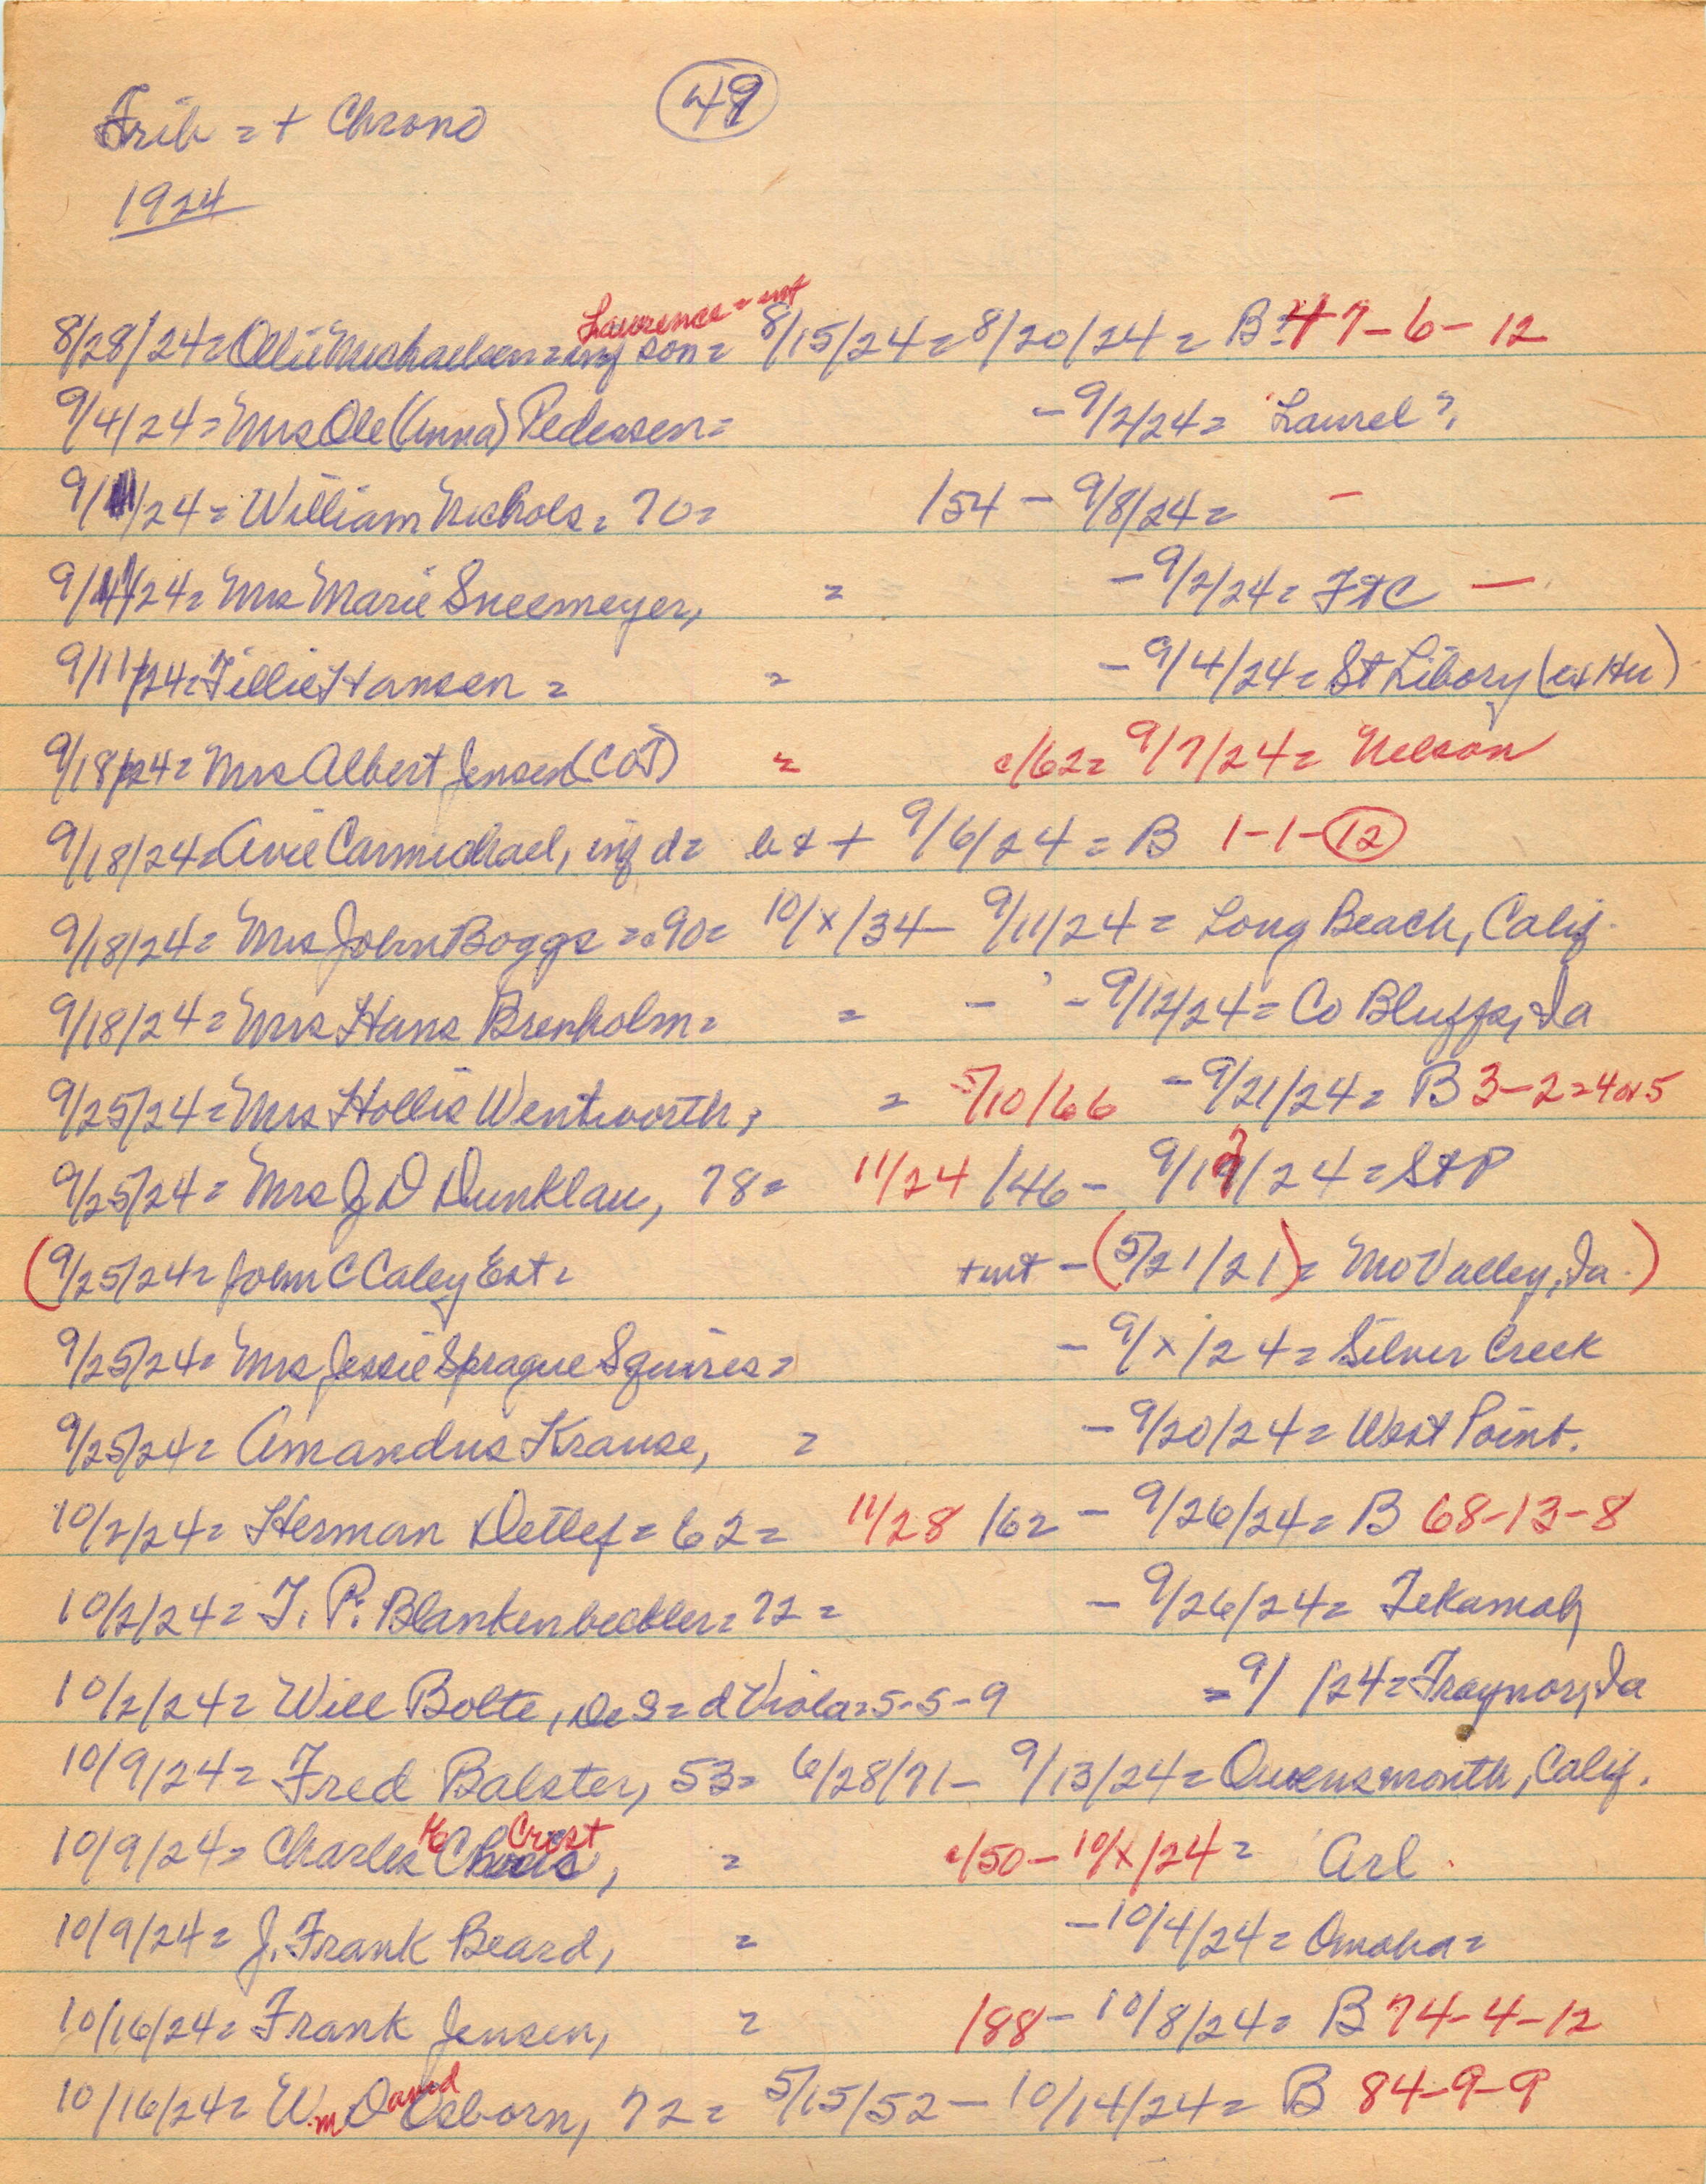 Trib = + Chrono
49
1924
Lawrence = int
8/28/24 = Ollie Michaelsen = inf son = 8/15/24 = 8/20/24 = B = 47-6-12
9/4/24 = Mrs Ole (Anna) Pedersen = - 9/2/24 = Laurel ?
9/11/24 = William Nichols = 70 = /54 - 9/8/24 = -
9/11/24 = Mrs Marie Sneemeyer, = - 9/2/24 = FtC -
9/11/24 = Tillie Hansen = = - 9/4/24 = St Libory (ex Hu)
9/18/24 = Mrs Albert Jensen (COT) = c/62 = 9/7/24 = Nelson
9/18/24 = Avie Carmichael, inf d = b x + 9/6/24 = B 1-1-12
9/18/24 = Mrs John Boggs = 90 = 10/x/34 - 9/11/24 = Long Beach, Calif.
9/18/24 = Mrs Hans Brenholm = = - - 9/12/24 = Co Bluffs, Ia
9/25/24 = Mrs Hollis Wentworth, = 5/10/66 - 9/21/24 = B 3-2=4 or 5
9/25/24 = Mrs J D Dunklau, 78 = 11/24/46 - 9/17/24 = StP
(9/25/24 = John C Caley Est = + int - (5/21/21) = Mo Valley, Ia.)
9/25/24 = Mrs Jessie Sprague Squires = - 9/x/24 = Silver Creek
9/25/24 = Amandus Krause, = - 9/20/24 = West Point.
10/2/24 = Herman Detlef = 62 = 11/28/62 - 9/26/24 = B 68-13-8
10/2/24 = T. P. Blankenbeckler = 72 = - 9/26/24 = Tekamah
10/2/24 = Will Bolte, De S = d Viola = 5-5-9 = 9/ /24 = Traynor, Ia
10/9/24 = Fred Balster, 53 = 6/28/71 - 9/13/24 = Owensmonth, Calif.
10/9/24 = Charles Crist, = c/50 - 10/x/24 = Arl.
10/9/24 = J. Frank Beard, = - 10/4/24 = Omaha =
10/16/24 = Frank Jensen, = /88 - 10/8/24 = B 74-4-12
10/16/24 = Wm David Osborn, 72 = 5/15/52 - 10/14/24 = B 84-9-9